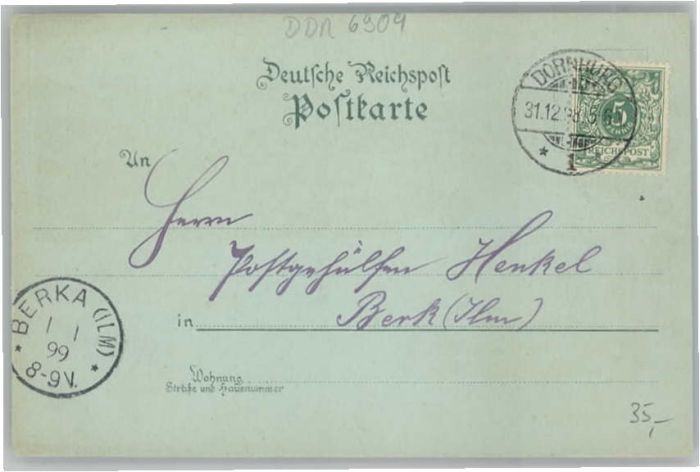 DDR 6904
Deutsche Reichspost
Postkarte
DORNBURG
31.12.98
1
5
REICHSPOST
An
Herrn
Postgehülfen Henkel
in Berk (Ilm)
BERKA (ILM)
1 1
99
8-9V.
Wohnung
Straße und Hausnummer
35,-